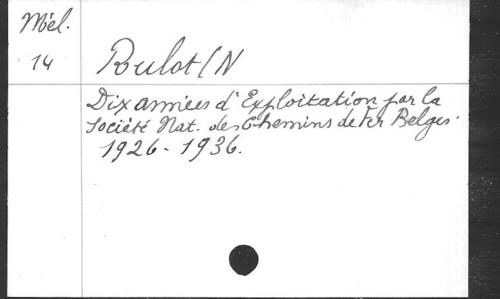 Mél.
14
Roulot (N
Dix années d'Exploitation par la
Société Nat. des Chemins de Fer Belges.
1926-1936.